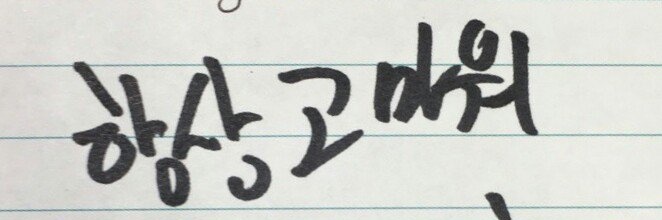 항상 고마워